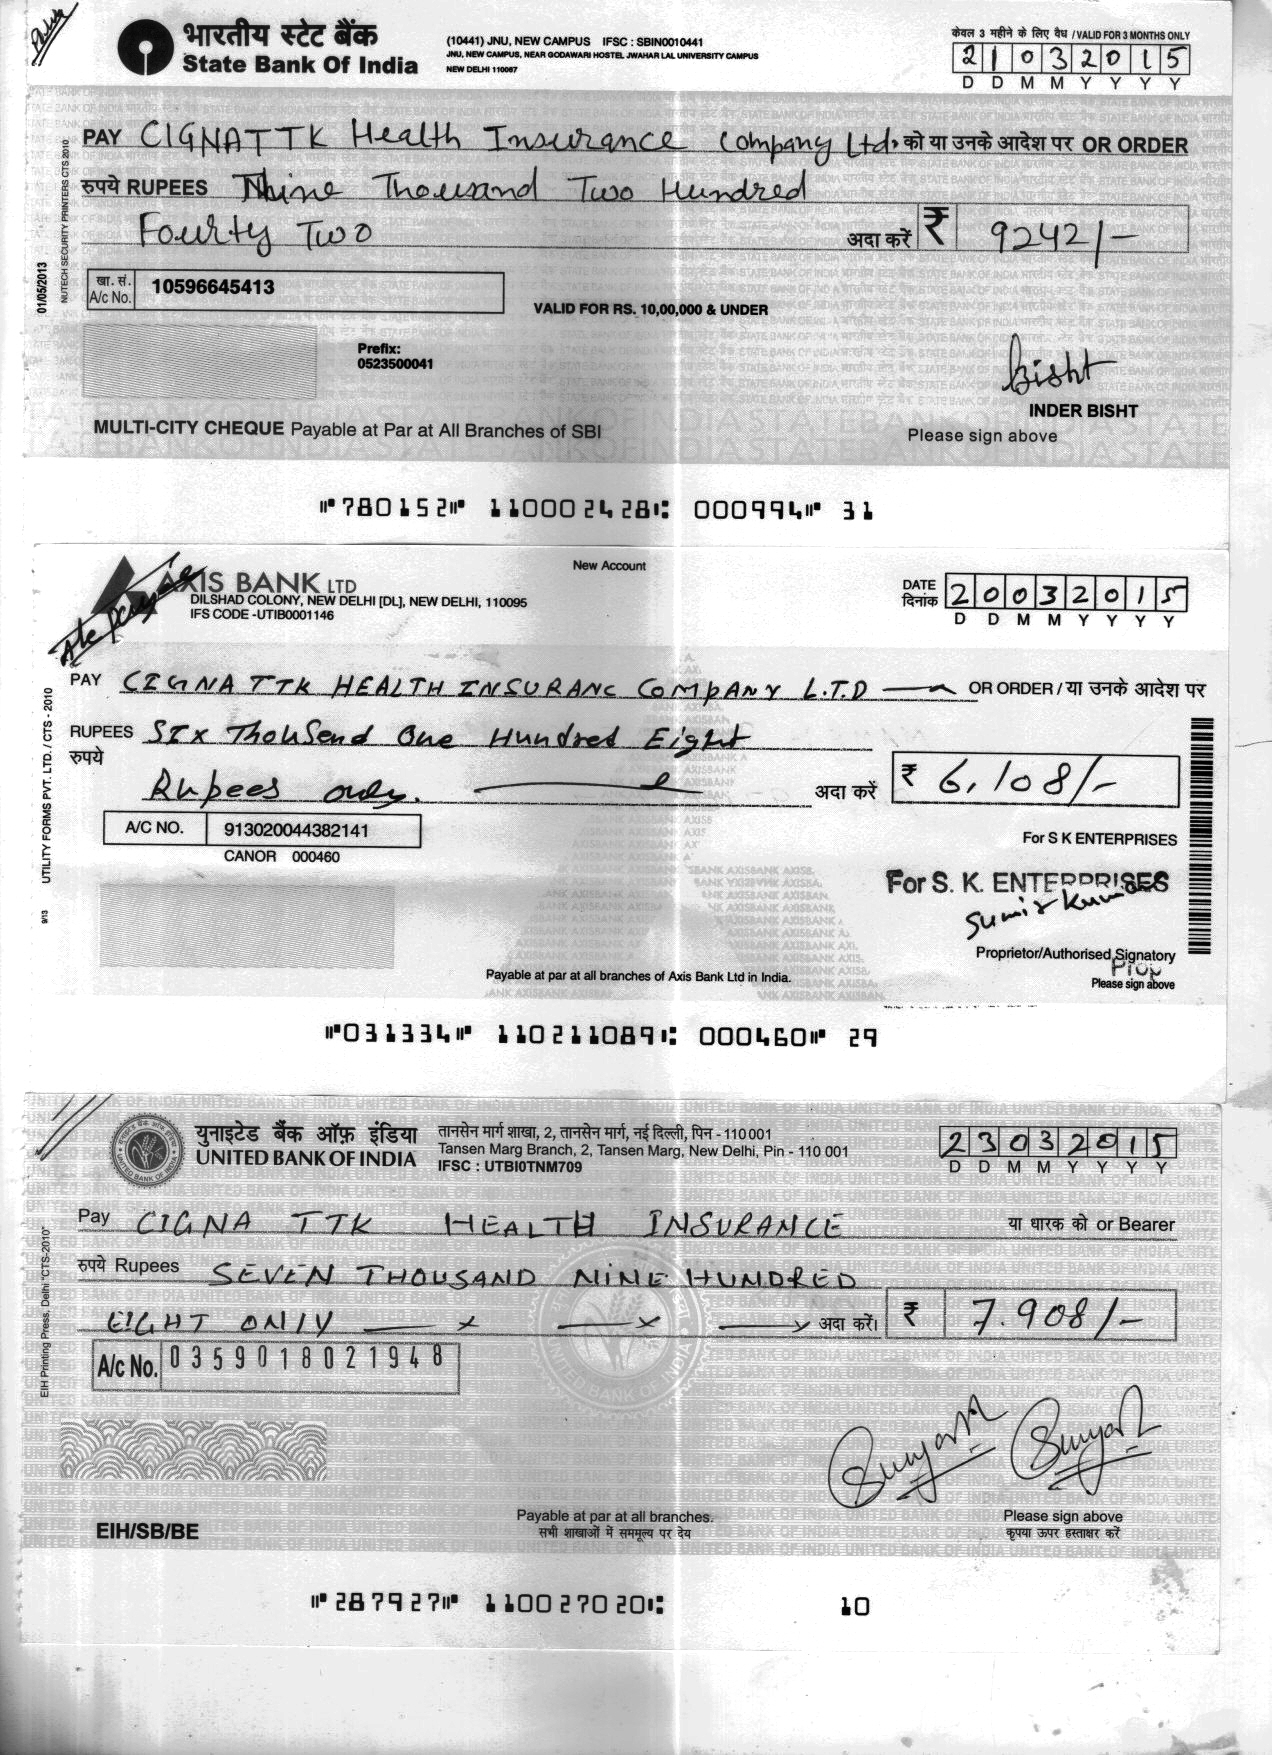 भारतीय स्टेट बैंक
State Bank Of India
(10441) JNU, NEW CAMPUS IFSC : SBIN0010441
JNU, NEW CAMPUS, NEAR GODAWARI HOSTEL JWAHAR LAL UNIVERSITY CAMPUS
NEW DELHI 110067
केवल 3 महीने के लिए वैध / VALID FOR 3 MONTHS ONLY
21032015
D D M M Y Y Y Y
PAY CIGNATTK Health Insurance Company Ltd. को या उनके आदेश पर OR ORDER
रुपये RUPEES Nine Thousand Two Hundred
Fourty Two
अदा करें ₹ 9242/-
खा. सं.
A/c No. 10596645413
VALID FOR RS. 10,00,000 & UNDER
Prefix:
0523500041
01/05/2013
NUTECH SECURITY PRINTERS CTS 2010
Bisht
INDER BISHT
Please sign above
MULTI-CITY CHEQUE Payable at Par at All Branches of SBI
⑈780152⑈ 110002428⑆ 000994⑈ 31
A/c payee
AXIS BANK LTD
DILSHAD COLONY, NEW DELHI [DL], NEW DELHI, 110095
IFS CODE -UTIB0001146
New Account
DATE
दिनांक 20032015
D D M M Y Y Y Y
PAY CIGNA TTK HEALTH INSURANC COMPANY L.T.D OR ORDER / या उनके आदेश पर
RUPEES SIX Thousend One Hundred Eight
रुपये
Rupees only. अदा करें ₹ 6,108/-
A/C NO. 913020044382141
CANOR 000460
UTILITY FORMS PVT. LTD. / CTS - 2010
9/13
For S K ENTERPRISES
For S. K. ENTERPRISES
Sumit Kumar
Proprietor/Authorised Signatory
Prop
Please sign above
Payable at par at all branches of Axis Bank Ltd in India.
⑈031334⑈ 110211089⑆ 000460⑈ 29
युनाइटेड बैंक ऑफ़ इंडिया
UNITED BANK OF INDIA
तानसेन मार्ग शाखा, 2, तानसेन मार्ग, नई दिल्ली, पिन - 110 001
Tansen Marg Branch, 2, Tansen Marg, New Delhi, Pin - 110 001
IFSC : UTBI0TNM709
23032015
D D M M Y Y Y Y
Pay CIGNA TTK HEALTH INSURANCE या धारक को or Bearer
रुपये Rupees SEVEN THOUSAND NINE HUNDRED
EIGHT ONLY अदा करें। ₹ 7.908/-
A/c No. 0359018021948
EIH Printing Press, Delhi "CTS-2010"
EIH/SB/BE
Payable at par at all branches.
सभी शाखाओं में सममूल्य पर देय
Please sign above
कृपया ऊपर हस्ताक्षर करें
⑈287927⑈ 110027020⑆ 10